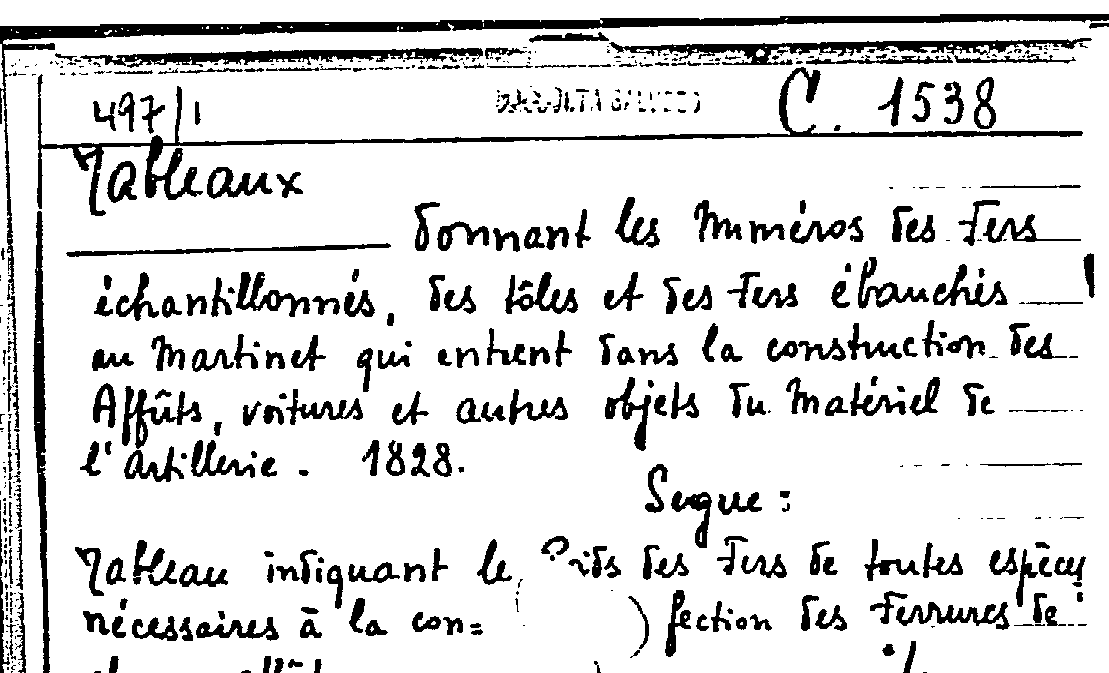 497/1 RACCOLTA SALUZZO C. 1538
Tableaux
donnant les Numéros des Fers
échantillonnés, des tôles et des Fers ébauchés
au Martinet qui entrent dans la construction des
Affûts, voitures et autres objets du Matériel de
l'artillerie. 1828.
Segue:
Tableau indiquant le Poids des Fers de toutes espèces
nécessaires à la con= fection des Ferrures de